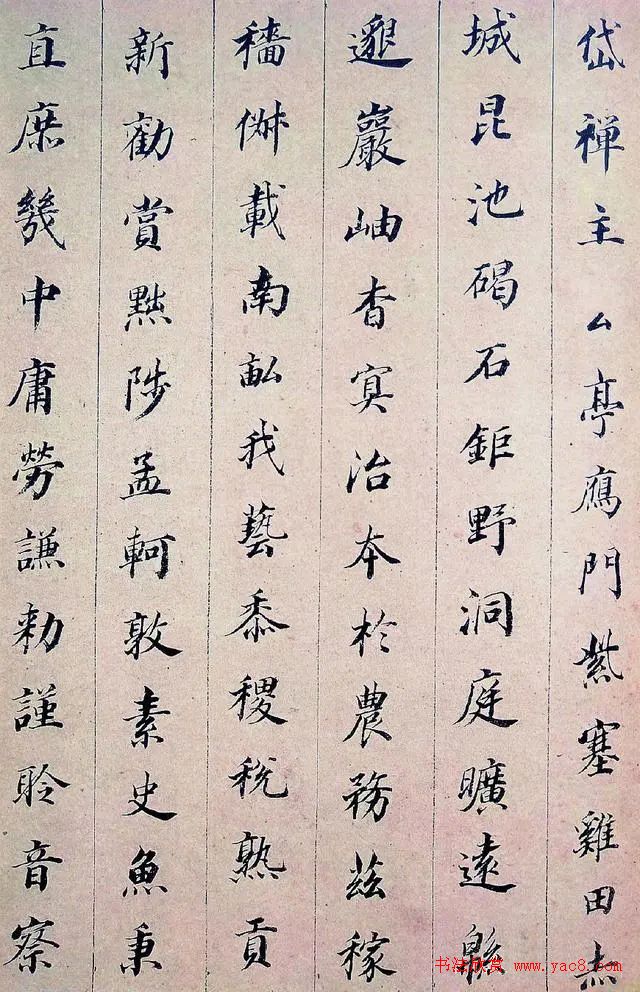 岱禪主云亭鴈門紫塞雞田赤
城昆池碣石鉅野洞庭曠遠緜
邈巖岫杳冥治本於農務茲稼
穡俶載南畝我藝黍稷稅熟貢
新勸賞黜陟孟軻敦素史魚秉
直庶幾中庸勞謙勅謹聆音察
书法欣赏 www.yac8.com